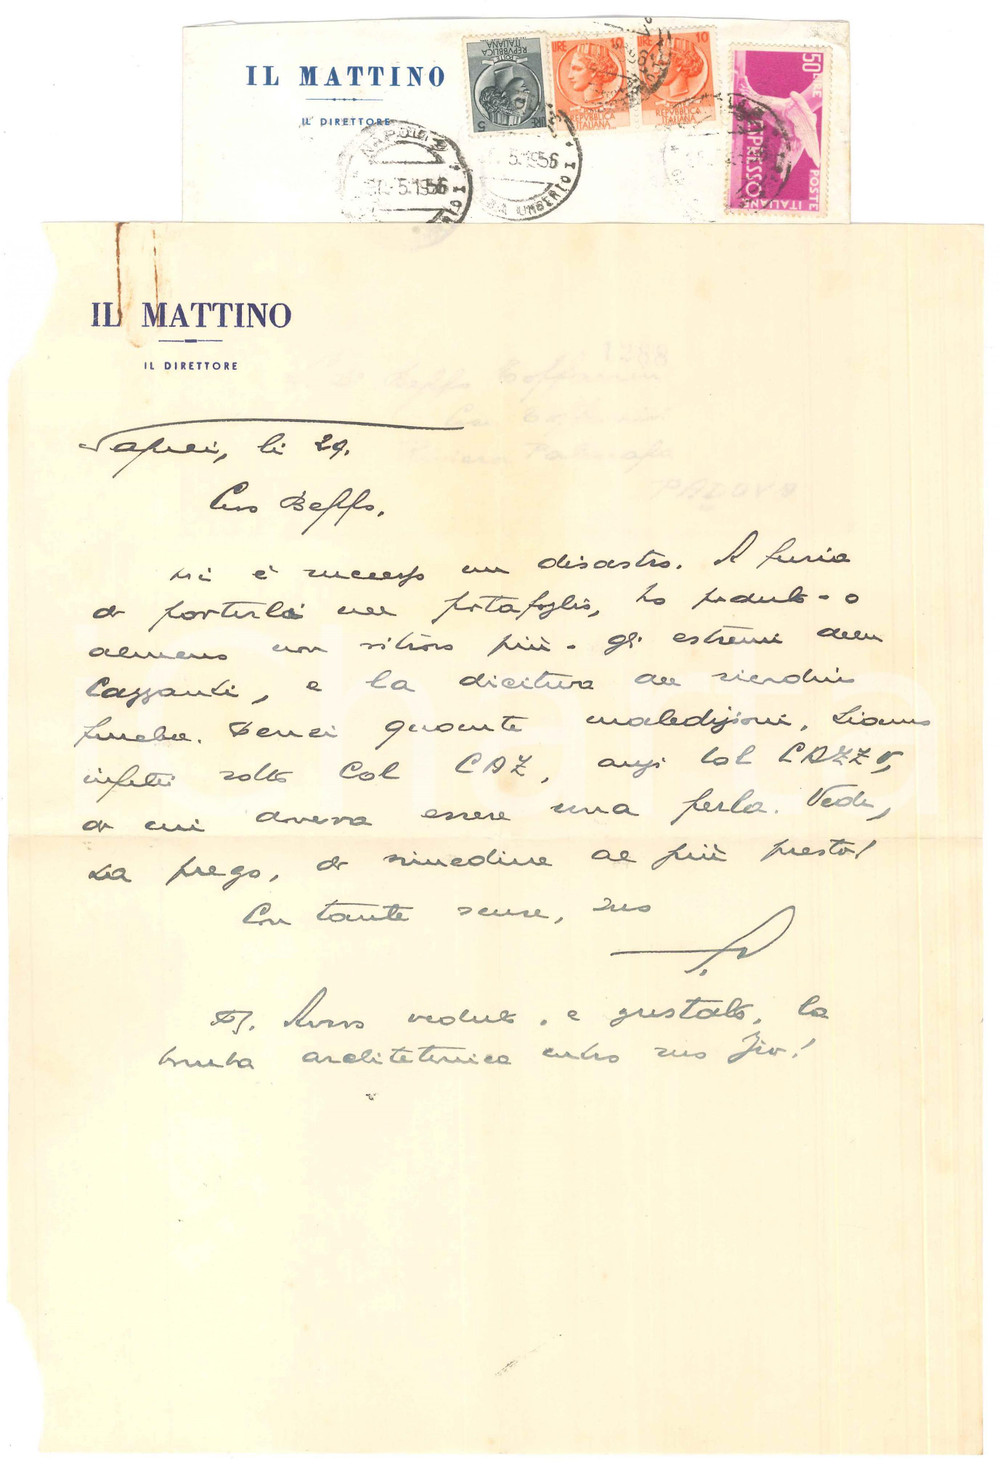 IL MATTINO
IL DIRETTORE
NAPOLI
5.1956
5.1956
UMBERTO I
LIRE 5
POSTE REPVBBLICA ITALIANA
LIRE 10
REPVBBLICA ITALIANA
10
REPVBBLICA ITALIANA
50 LIRE
ESPRESSO
POSTE ITALIANE
IL MATTINO
IL DIRETTORE
1388
PADOVA
Napoli, li 29.
Caro Beppo,
mi è successo un disastro. A furia
di portarla nel portafoglio, ho perduto - o
almeno non ritrovo più - gli estremi della
Cazzanti, e la dicitura del
funebre. quante maledizioni. Siamo
infatti sotto col CAZ, anzi col CAZZO,
di cui doveva essere una perla. Vedi,
ti prego, di rimediare al più presto!
Con tante scuse, tuo
PS. Avevo veduto, e gustato, la
tomba architettonica